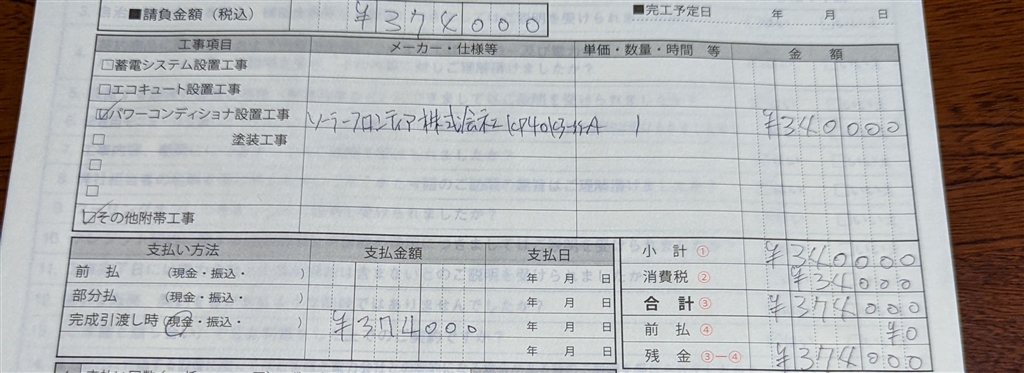 ■請負金額（税込） ¥374000 ■完工予定日 年 月 日
工事項目 メーカー・仕様等 単価・数量・時間 等 金 額
□蓄電システム設置工事
□エコキュート設置工事
☑パワーコンディショナ設置工事 ソーラーフロンティア株式会社 1 ¥340000
□ 塗装工事
□
□
☑その他附帯工事
支払い方法 支払金額 支払日
前 払 (現金・振込・ ) 年 月 日
部分払 (現金・振込・ ) 年 月 日
完成引渡し時 (現金・振込・ ) ¥374000 年 月 日
年 月 日
小 計 ① ¥340000
消費税 ② ¥34000
合 計 ③ ¥374000
前 払 ④ ¥0
残 金 ③ー④ ¥374000